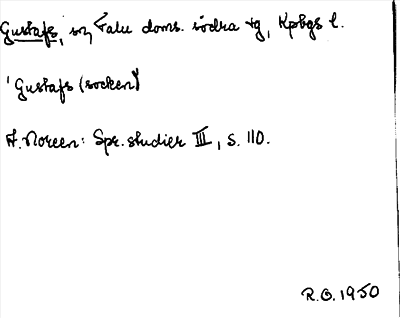 Gustafs, sn Falu doms. södra tg, Kpbgs l.
'Gustafs (socken)'
A. Noreen: Spr. studier III, s. 110.
R.O. 1950